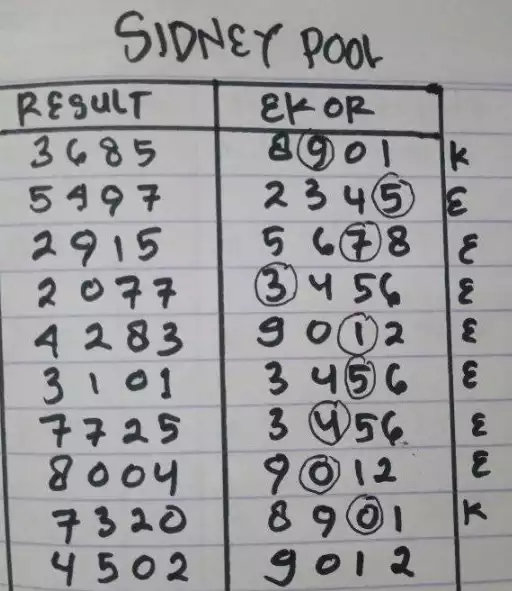 SIDNEY POOL
RESULT EKOR
3685 8901 K
5497 2345 E
2915 5678 E
2077 3456 E
4283 9012 E
3101 3456 E
7725 3456 E
8004 9012 E
7320 8901 K
4502 9012